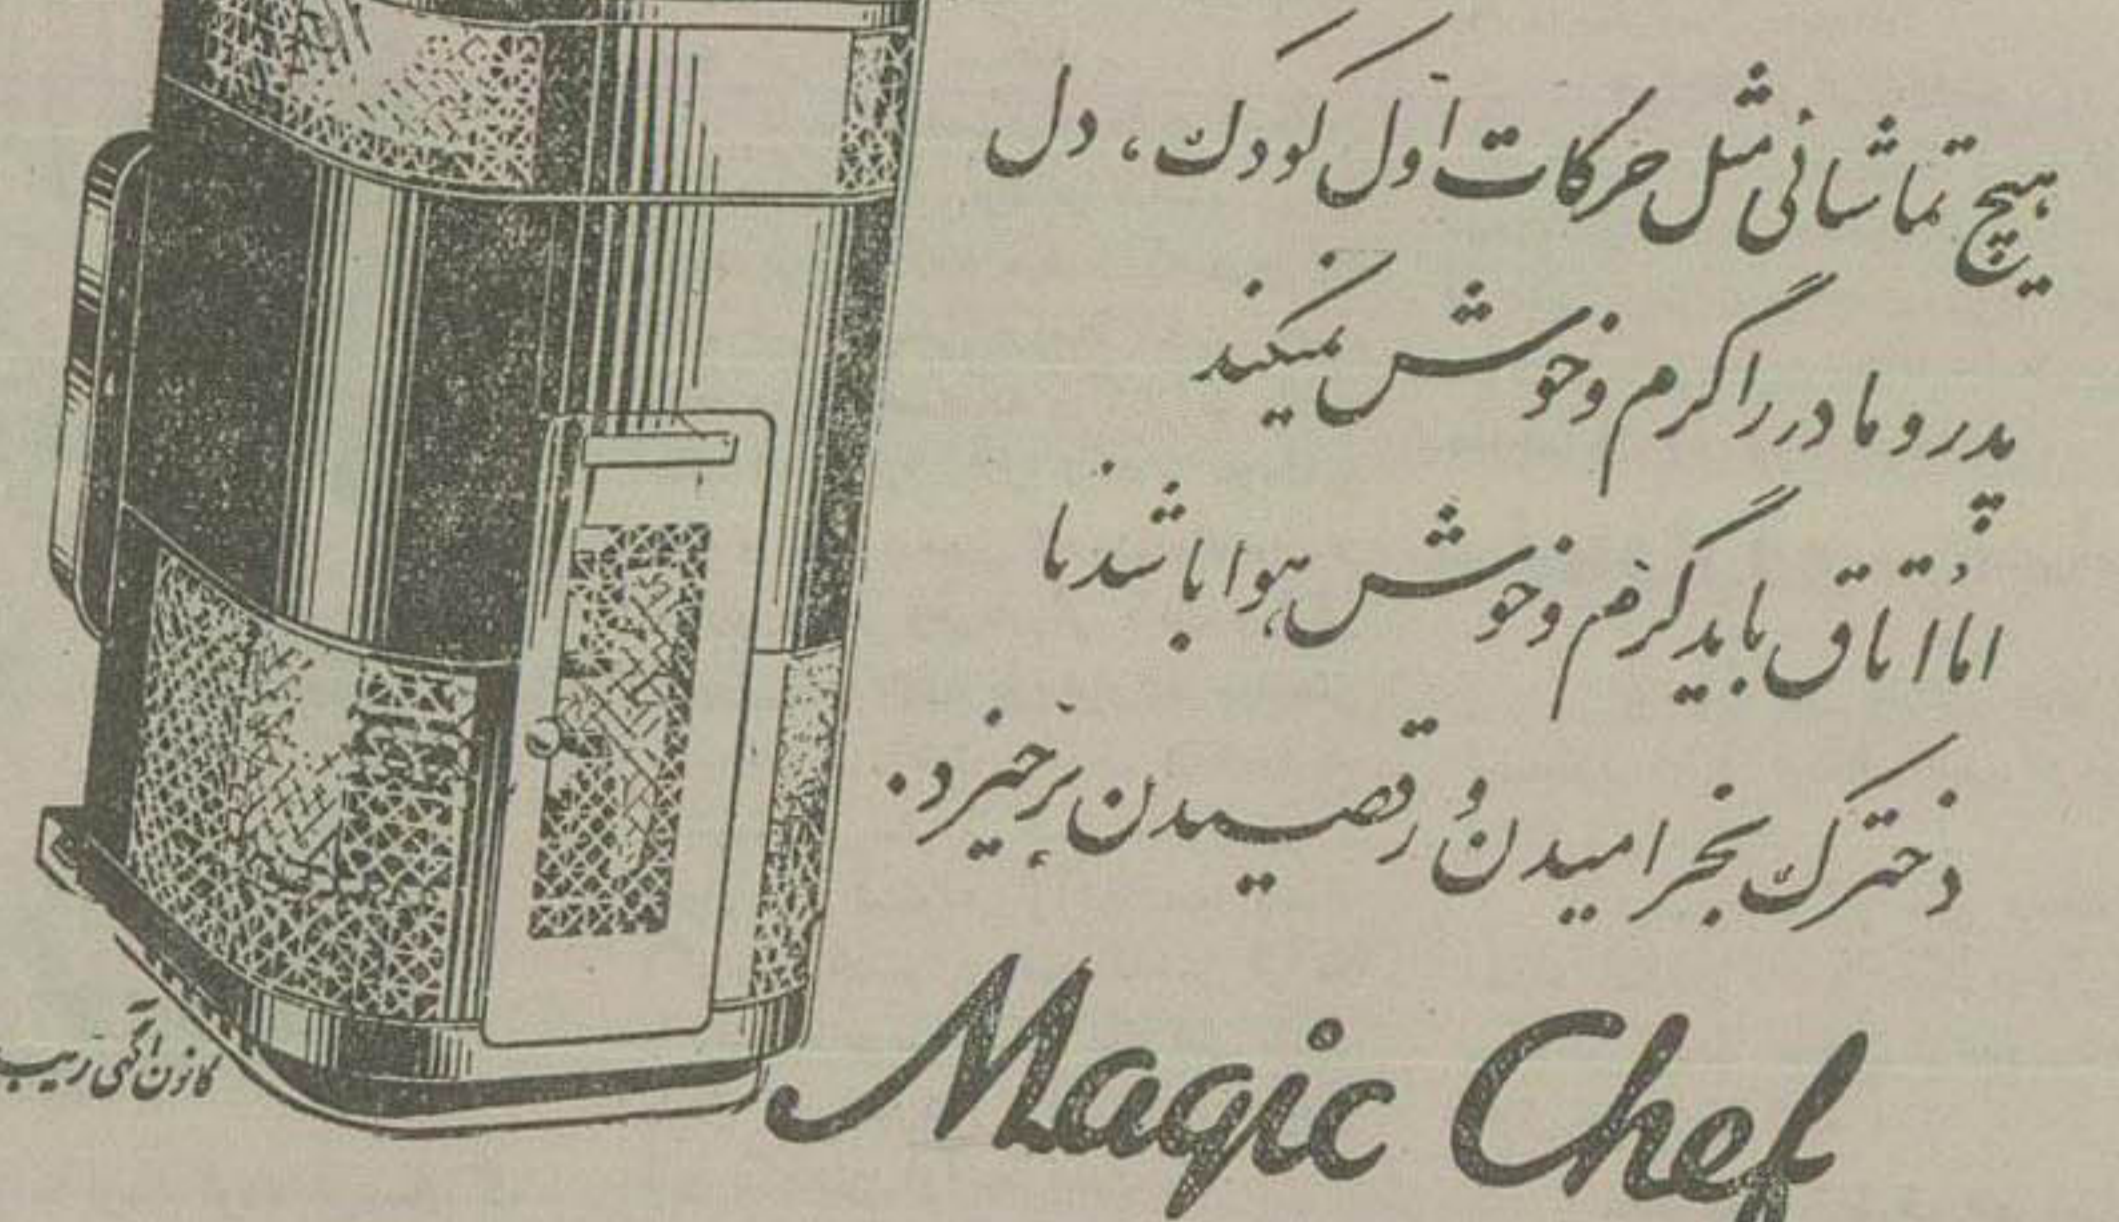 هیچ تماشائی مثل حرکات اول کودک، دل
پدر و مادر را گرم و خوش نمیکند
اما اتاق باید گرم و خوش هوا باشد تا
دخترک بخرامیدن و رقصیدن برخیزد.
Magic Chef
کانون آگهی زیبا